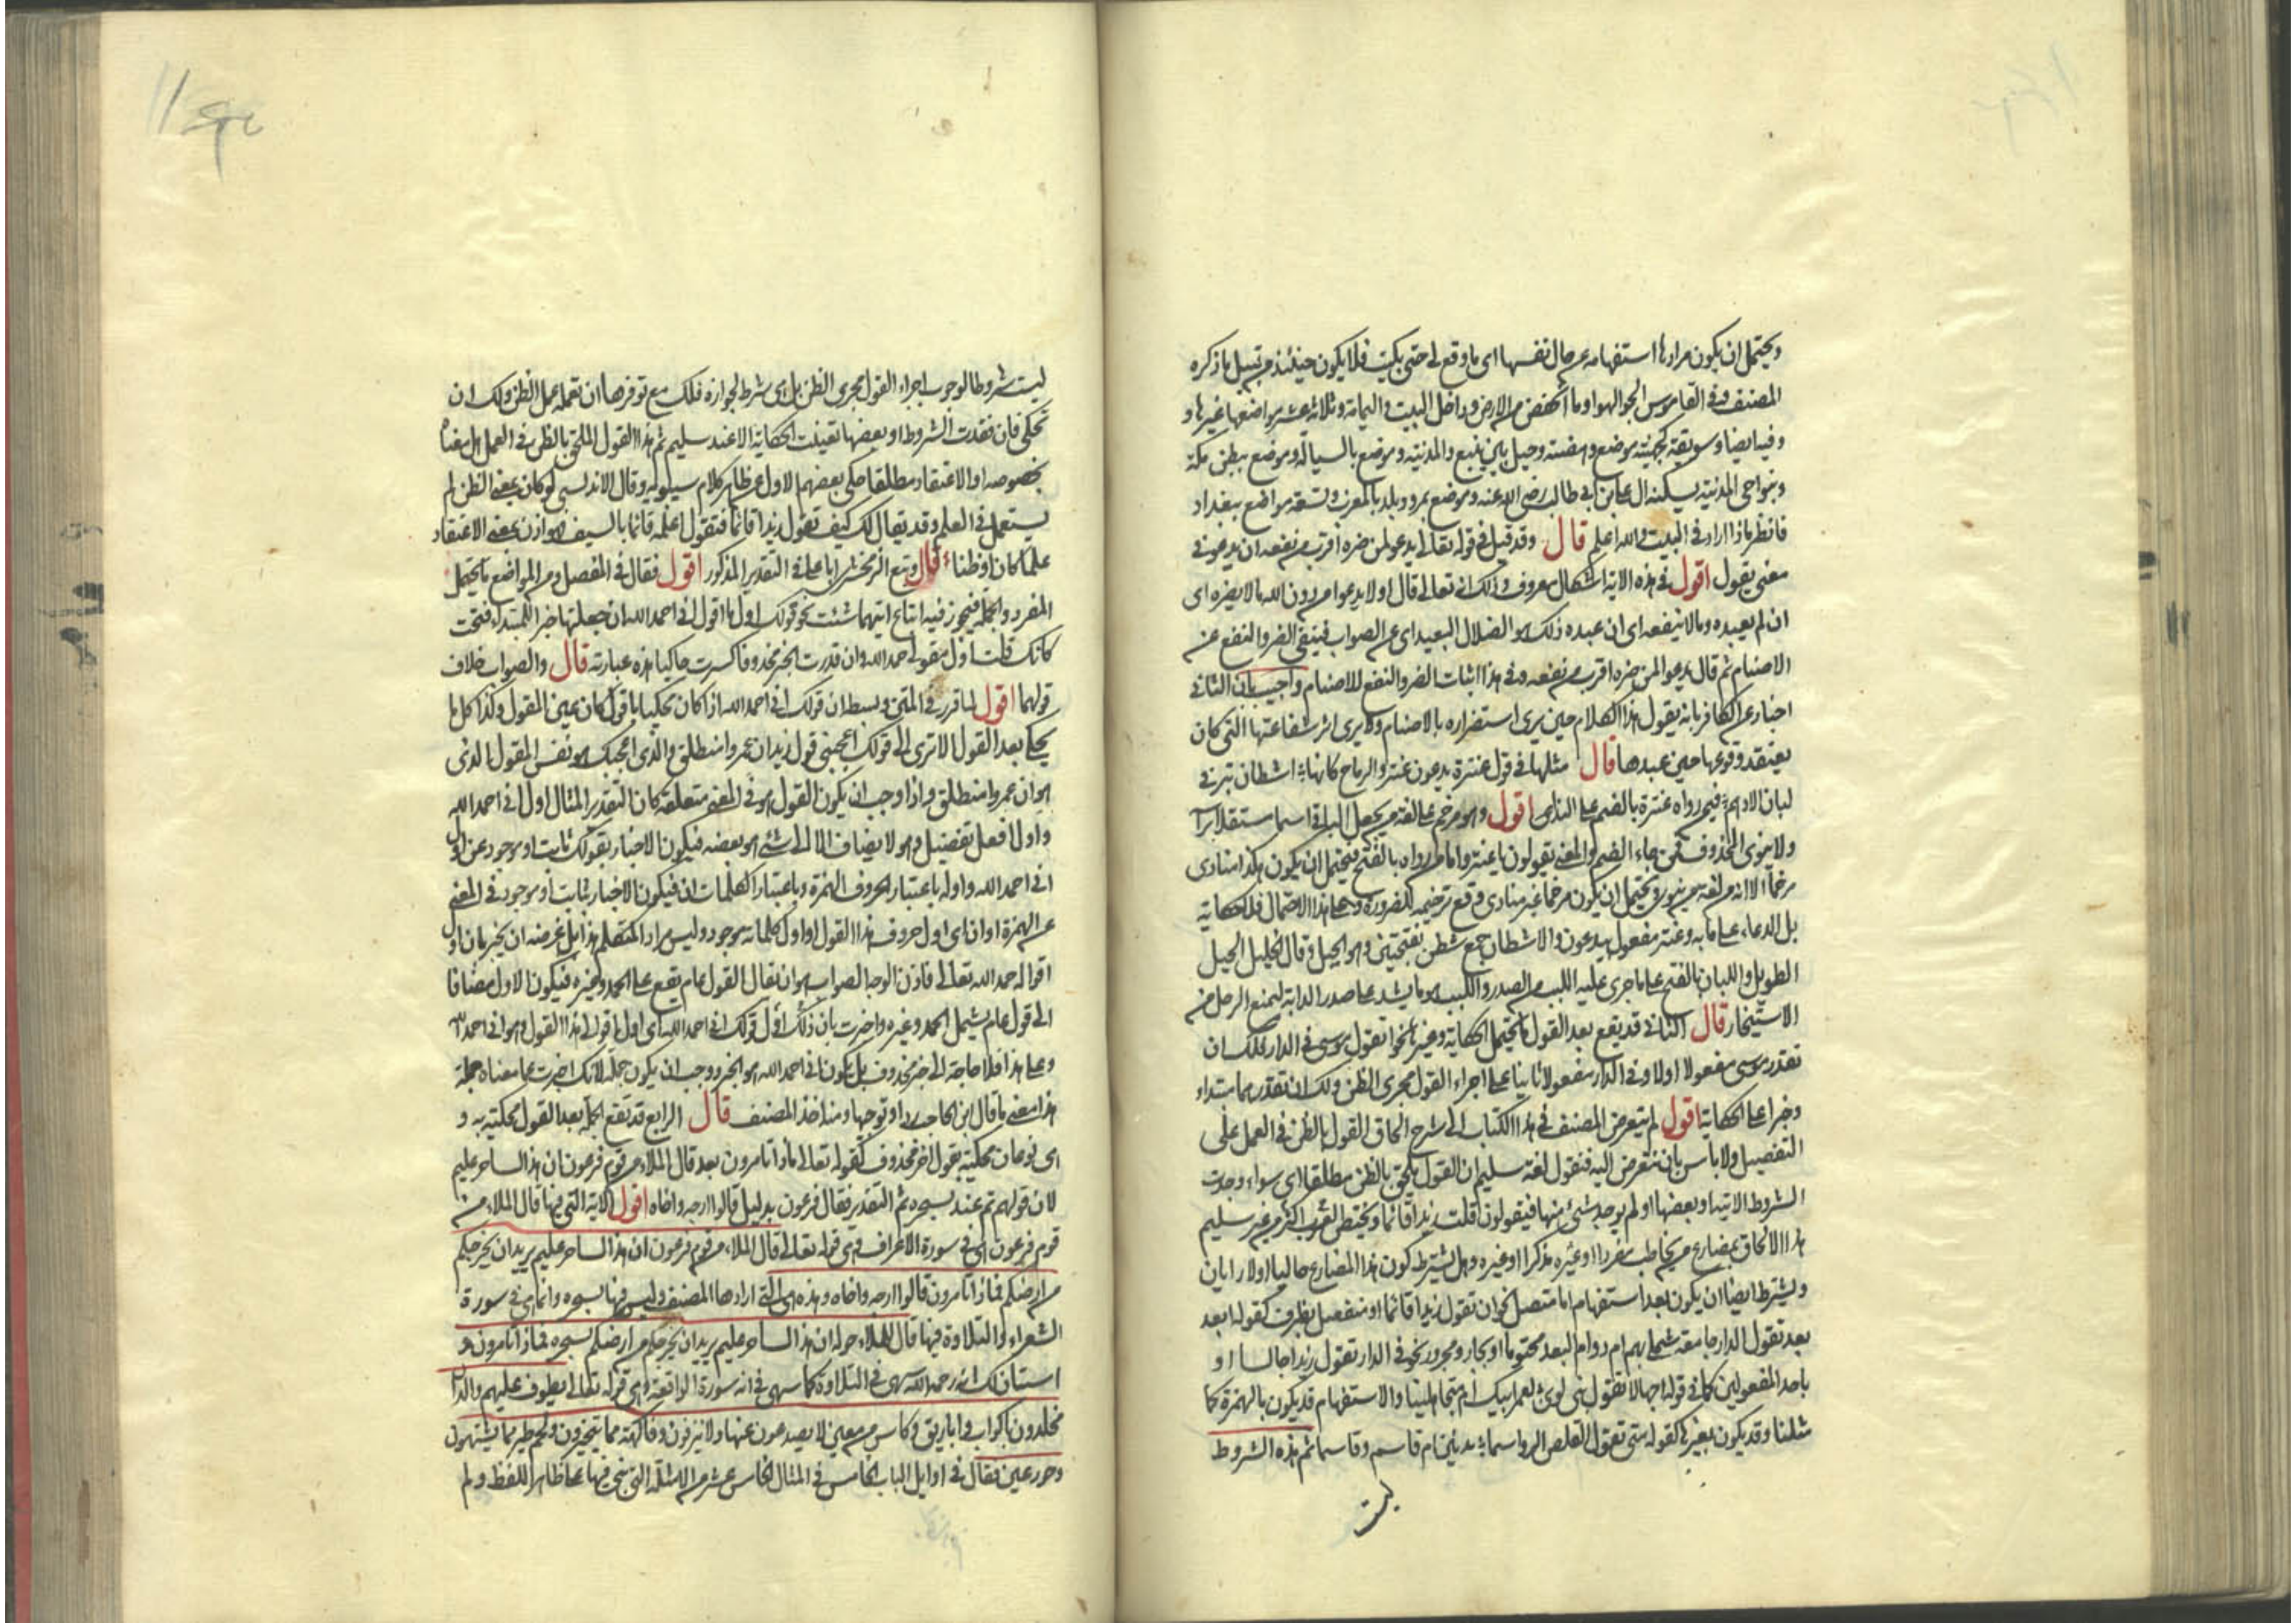 ويحتمل ان يكون مرادها استفهامه عن حال نفسها اى ما وقع لى حتى بكيت فلا يكون حينئذ من قبيل ما ذكره
المصنف وفى القاموس الجو الهواء وما انخفض من الارض وداخل البيت واليمامة وثلاثة عشر مواضعها غيرها و
وفيه ايضا وسويقة كجهينة موضع وهضبة وجبل بين ينبع والمدينة وموضع بالسيالة وموضع ببطن مكة
وبنواحى المدينة يسكنه ال على بن ابى طالب رضى الله عنه وموضع بمرو وبلد بالمغرب وتسعة مواضع ببغداد
فانظر ماذا اراد فى البيت والله اعلم قال وقد قيل فى قوله تعالى يدعو لمن ضره اقرب من نفعه ان يدعو فى
معنى يقول اقول فى هذه الاية اشكال معروف وذلك انه تعالى قال اولا يدعو من دون الله مالا يضره اى
ان لم يعبده ومالا ينفعه اى ان عبده ذلك هو الضلال البعيد اى عن الصواب فنفى الضر والنفع عن
الاصنام ثم قال يدعو لمن ضره اقرب من نفعه وفى هذا اثبات الضر والنفع للاصنام واجيب بان الثانى
اخبار عن الكافر بانه يقول هذا الكلام حين يرى استضراره بالاصنام ولا يرى اثر شفاعتها التى كان
يعتقد وقوعها حين عبدها قال مثلها فى قول عنترة يدعون عنتر والرماح كانها اشطان بئر فى
لبان الادهم فيمن رواه عنترة بالضم على النداء اقول وهو مرخم على لغة من يجعل الباقى اسما مستقلا براسه
ولا ينوى المحذوف فمن جاء الضم والمعنى يقولون يا عنتر واما من رواه بالفتح فيحتمل ان يكون هكذا منادى
مرخما الا انه من لغة من ينوى ويحتمل ان يكون مرخما غير منادى وقع ترخيمه للضرورة وعلى هذا الاحتمال فلا حكاية
بل الدعاء على بابه وعنتر مفعول يدعون والاشطان جمع شطن بفتحتين وهو الحبل وقال الخليل الحبل
الطويل واللبان بالفتح على ما جرى عليه اللبب من الصدر واللبب هو ما يشد على صدر الدابة ليمنع الرحل من
الاستيخار قال الثانى قد يقع بعد القول ما يحتمل الحكاية وغيرها نحو اتقول موسى فى الدار فلك ان
تقدر موسى مفعولا اولا وفى الدار مفعولا ثانيا على اجراء القول مجرى الظن ولك ان تقدرهما مبتداء
وخبرا على الحكاية اقول لم يتعرض المصنف فى هذا الكتاب الى شرح الحاق القول بالظن فى العمل على
التفصيل ولا باس بان نتعرض اليه فنقول لغة سليم ان القول يلحق بالظن مطلقا اى سواء وجدت
الشروط الاتية او بعضها او لم يوجد شئ منها فيقولون قلت زيدا قائما ويختص اكثر العرب من غير سليم
هذا الالحاق بمضارع من يخاطب مفردا او غيره مذكرا او غيره وهل يشترط كون هذا المضارع حاليا او لا رايان
ويشترط ايضا ان يكون بعد استفهام اما متصل نحو ان تقول زيدا قائما او منفصل بظرف كقوله ابعد
بعد تقول الدار جامعة شملى بهم ام دوام البعد محتوما او بجار ومجرور نحو فى الدار تقول زيدا جالسا او
باحد المفعولين كما فى قوله اجهالا تقول بنى لوى لعمر ابيك ام متجاهلينا والاستفهام قد يكون بالهمزة كما
مثلنا وقد يكون بغيرها كقوله متى تقول القلص الرواسما يدنين ام قاسم وقاسما ثم هذه الشروط
ليست
ليست شروطا لوجوب اجراء القول مجرى الظن بل هى شرط لجوازه فلك مع توفرها ان تعمله عمل الظن ولك ان
تحكى فان فقدت الشروط او بعضها تعينت الحكاية الا عند سليم ثم هذا القول الملحق بالظن فى العمل هل معناه
بخصوصه او الاعتقاد مطلقا حكى بعضهم الاول عن ظاهر كلام سيبويه وقال الاندلسى لو كان بمعنى الظن لم
يستعمل فى العلم وقد يقال لك كيف تقول زيدا قائما فتقول اعلمه قائما بالسيف هو اذن بمعنى الاعتقاد
علما كان او ظنا قال وتبع الزمخشرى ابا على فى التقدير المذكور اقول فقال فى المفصل ومن المواضع ما يحتمل
المفرد والجملة فيجوز فيه ايقاع ايتهما شئت نحو قولك اول ما اقول انى احمد الله ان جعلتها خبرا للمبتداء فتحت
كانك قلت اول مقولى احمد الله وان قدرت الخبر محذوفا كسرت حاكيا هذه عبارته قال والصواب خلاف
قولهما اقول لما قرره فى المتن وبسطه ان قولك انى احمد الله اذا كان محكيا باقول كان عين المقول وكذا كل ما
يحكى بعد القول الا ترى الى قولك اعجبنى قول زيد ان عمروا منطلق والذى اعجبك هو نفس المقول الذى
هو ان عمروا منطلق واذا وجب ان يكون القول هو فى المعنى متعلقه كان التقدير المثال اول انى احمد الله
واول افعل تفضيل وهو لا يضاف الا الى شئ هو بعضه فيكون الاخبار بقولك ثابت او موجود عن اول
انى احمد الله واوله باعتبار الحروف الهمزة وباعتبار الكلمات ان فيكون الاخبار بثابت او موجود فى المعنى
عن الهمزة او ان اى اول حروف هذا القول او اول كلماته موجود وليس مراد المتكلم هذا بل غرضه ان يخبر بان اول
اقواله حمد الله تعالى فاذن الوجه الصواب هو ان يقال القول عام يقع على الحمد وغيره فيكون الاول مضافا
الى قول عام يشمل الحمد وغيره واخبرت بان ذلك اول قولك انى احمد الله اى اول ما قولى هذا القول وهو انى احمد الله
وعلى هذا فلا حاجة الى خبر محذوف بل يكون انى احمد الله هو الخبر ووجب ان يكون جملة لانك اخبرت عما معناه جملة
هذا معنى ما قال ابن الحاجب ردا وتوجيها ومنه اخذ المصنف قال الرابع قد تقع الجملة بعد القول محكية به و
هى نوعان محكية بقول اخر محذوف كقوله تعالى ماذا تامرون بعد قال الملاء من قوم فرعون ان هذا لساحر عليم
لان قولهم تم عند بسحره ثم التقدير فقال فرعون بدليل قالوا ارجه واخاه اقول الاية التى فيها قال الملاء من
قوم فرعون هى فى سورة الاعراف وهى قوله تعالى قال الملاء من قوم فرعون ان هذا لساحر عليم يريد ان يخرجكم
من ارضكم فماذا تامرون قالوا ارجه واخاه وهذه هى التى ارادها المصنف وليس فيها بسحره وانما هى فى سورة
الشعراء والتلاوة فيها قال للملاء حوله ان هذا لساحر عليم يريد ان يخرجكم من ارضكم بسحره فماذا تامرون و
استبان لك انه رحمه الله سهى فى التلاوة كما سهى فى انه سورة الواقعة وهى قوله تعالى يطوف عليهم ولدان
مخلدون باكواب واباريق وكاس من معين لا يصدعون عنها ولا ينزفون وفاكهة مما يتخيرون ولحم طير مما يشتهون
وحور عين فقال فى اوايل الباب الخامس فى المثال الخامس عشر من الامثلة التى بنى فيها على ظاهر اللفظ ولم